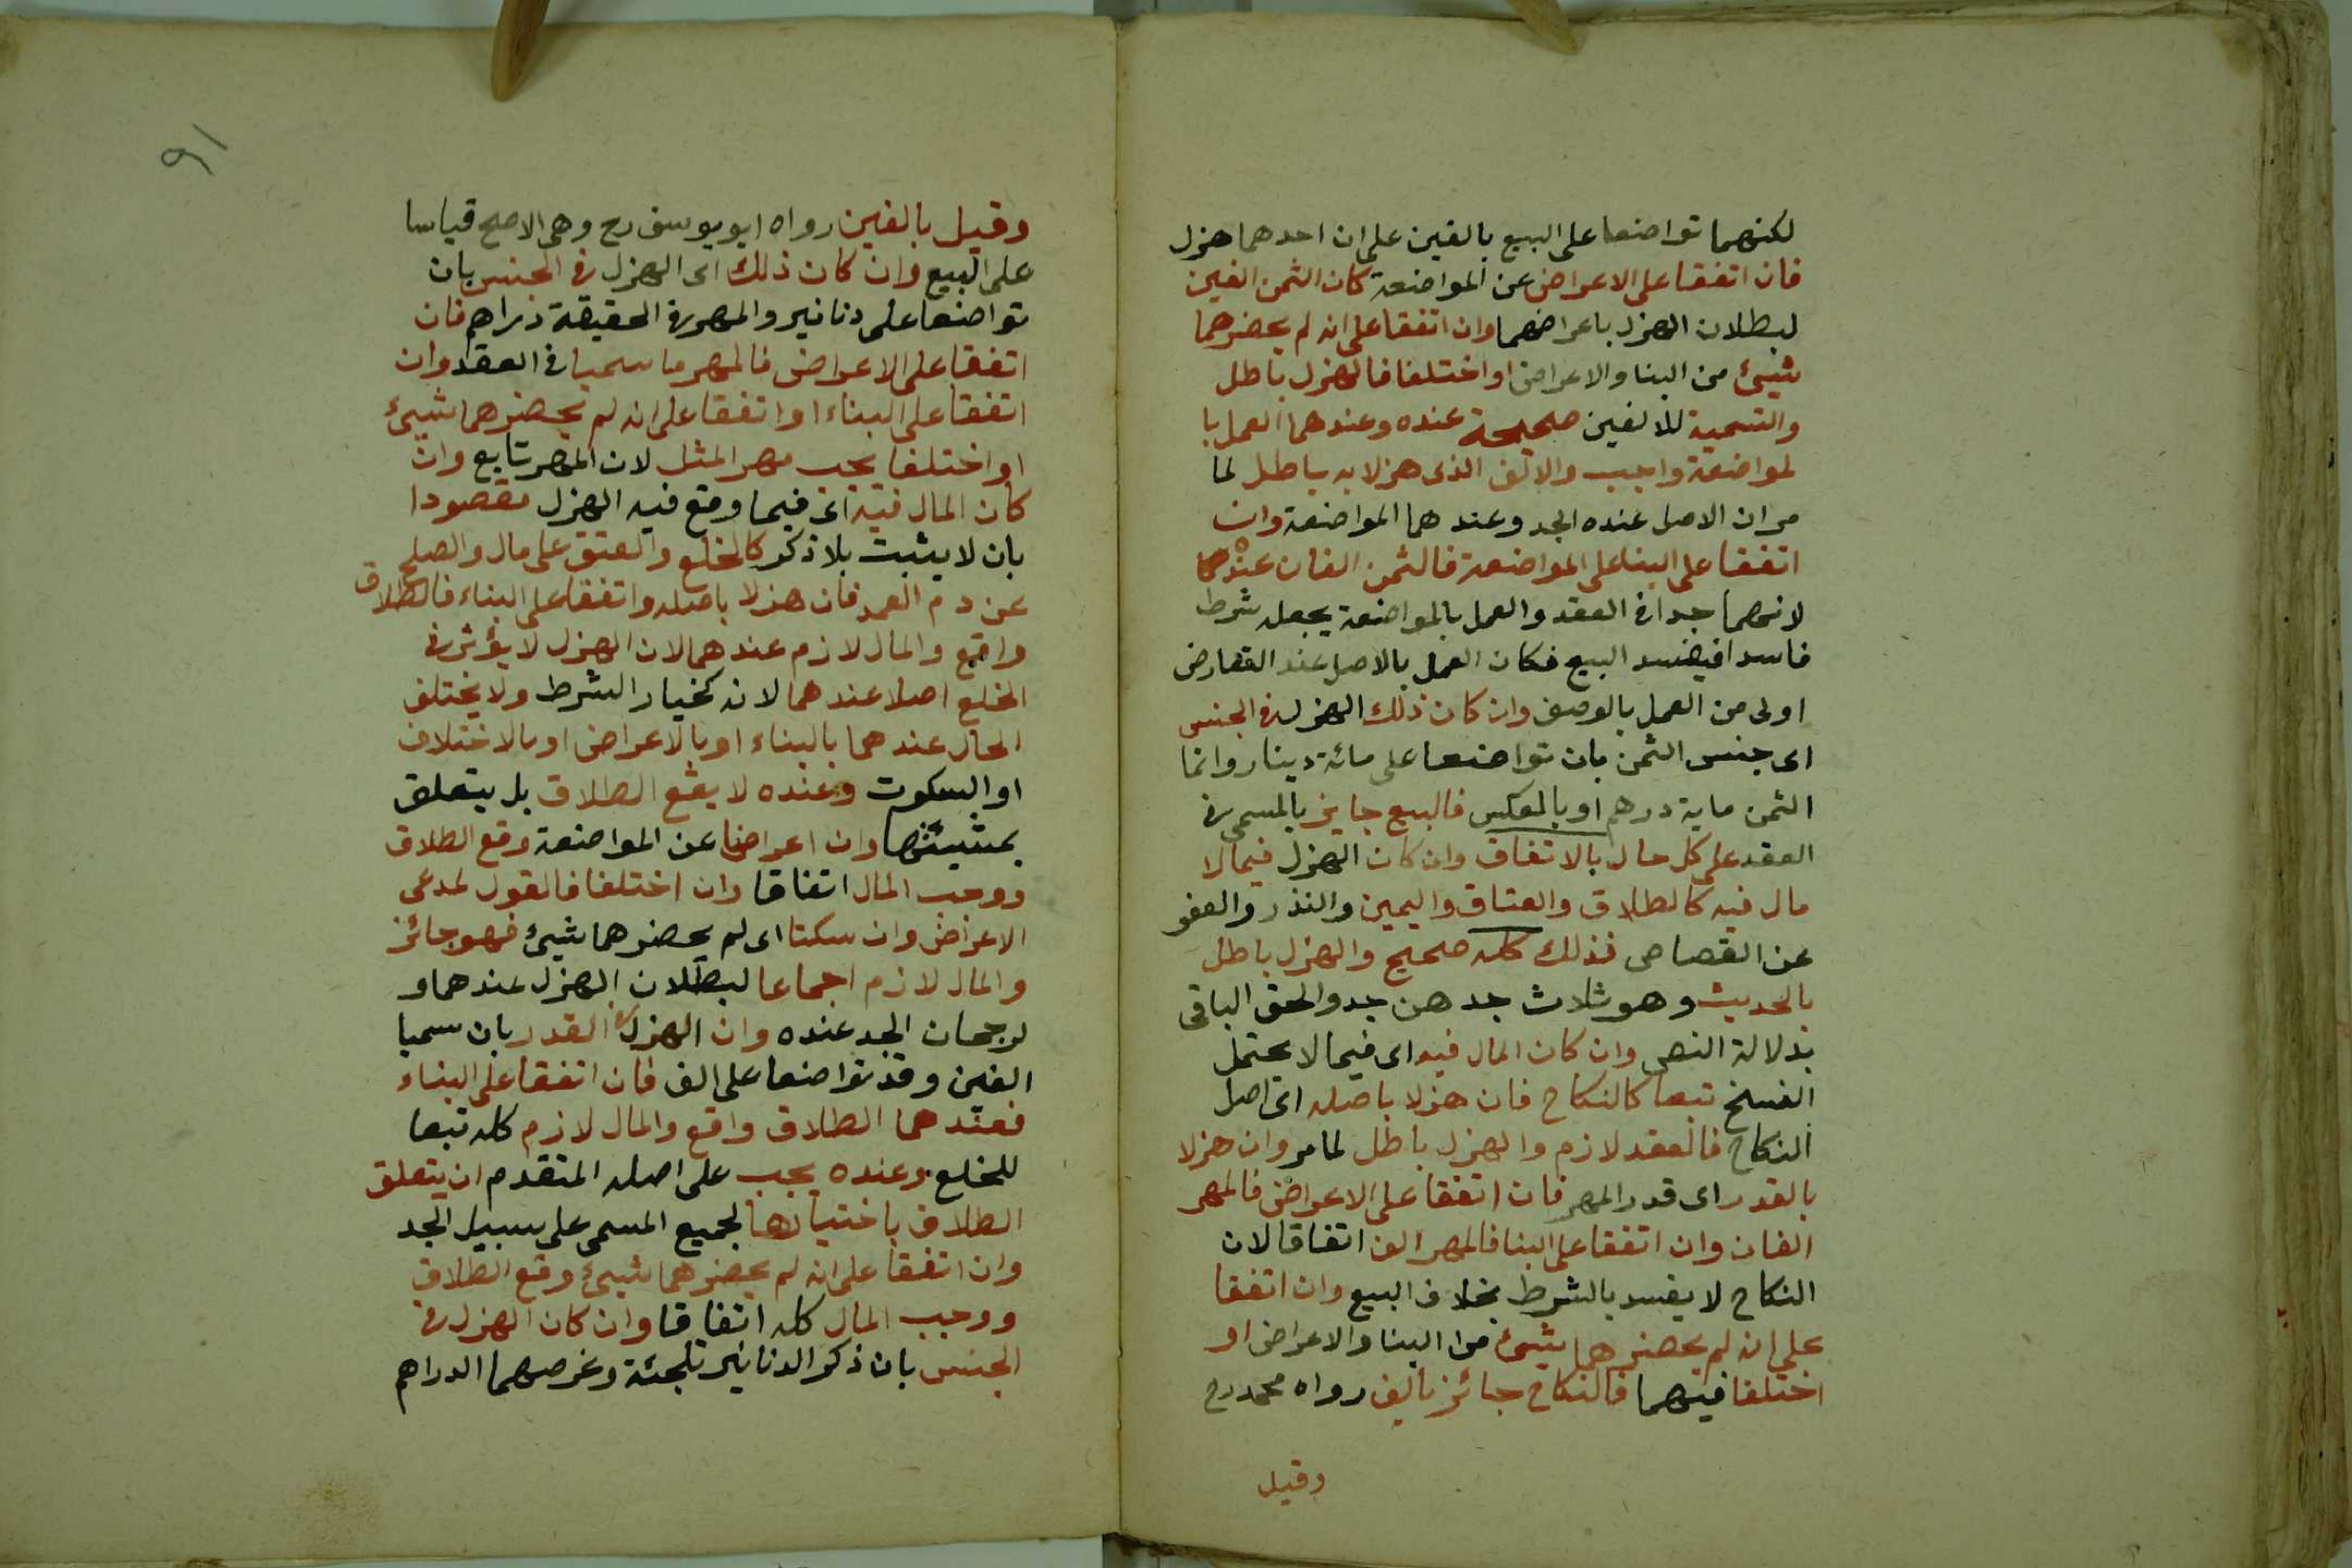 لكنهما تواضعا على البيع بالفين على ان احدهما هزل
فان اتفقا على الاعراض عن المواضعة كان الثمن الفين
لبطلان الهزل باعراضهما وان اتفقا على انه لم يحضرهما
شيئ من البنا والاعراض او اختلفا فالهزل باطل
والتسمية للالفين صحيحة عنده وعندهما العمل با
لمواضعة واجب والالف الذى هزلا به باطل لما
مر ان الاصل عنده الجد وعندهما المواضعة وان
اتفقا على البنا على المواضعة فالثمن الفان عنده
لانهما جدا فى العقد والعمل بالمواضعة يجعله شرط
فاسدا فيفسد البيع فكان العمل بالاصل عند التعارض
اولى من العمل بالوصف وان كان ذلك الهزل فى الجنس
اى جنس الثمن بان تواضعا على مائة دينار وانما
الثمن ماية درهم او بالعكس فالبيع جايز بالمسمى فى
العقد على كل حال بالاتفاق وان كان الهزل فيما لا
مال فيه كالطلاق والعتاق واليمين والنذر والعفو
عن القصاص فذلك كله صحيح والهزل باطل
بالحديث وهو ثلاث جدهن جد والحق الباقى
بدلالة النص وان كان المال فيه اى فيما لا يحتمل
الفسخ تبعا كالنكاح فان هزلا باصله اى اصل
النكاح فالعقد لازم والهزل باطل لما مر وان هزلا
بالقدر اى قدر المهر فان اتفقا على الاعراض فالمهر
الفان وان اتفقا على البنا فالمهر الف اتفاقا لان
النكاح لا يفسد بالشرط بخلاف البيع وان اتفقا
على انه لم يحضرهما شيئ من البنا والاعراض او
اختلفا فيهما فالنكاح جائز بالف رواه محمد رح
وقيل
٩١
وقيل بالفين رواه ابو يوسف رح وهى الاصح قياسا
على البيع وان كان ذلك اى الهزل فى الجنس بان
تواضعا على دنانير والمهر فى الحقيقة دراهم فان
اتفقا على الاعراض فالمهر ما سميا فى العقد وان
اتفقا على البناء او اتفقا على انه لم يحضرهما شيئ
او اختلفا يجب مهر المثل لان المهر تابع وان
كان المال فيه اى فيما وقع فيه الهزل مقصودا
بان لا يثبت بلا ذكر كالخلع والعتق على مال والصلح
عن دم العمد فان هزلا باصله واتفقا على البناء فالطلاق
واقع والمال لازم عندهما لان الهزل لا يؤثر فى
الخلع اصلا عندهما لانه كخيار الشرط ولا يختلف
الحال عندهما بالبناء او بالاعراض او بالاختلاف
او السكوت وعنده لا يقع الطلاق بل يتعلق
بمشيئتها وان اعراضا عن المواضعة وقع الطلاق
ووجب المال اتفاقا وان اختلفا فالقول لمدعى
الاعراض وان سكتا اى لم يحضرهما شيئ فهو جائز
والمال لازم اجماعا لبطلان الهزل عندهما و
لرجحان الجد عنده وان الهزل فى القدر بان سميا
الفين وقد تواضعا على الف فان اتفقا على البناء
فعندهما الطلاق واقع والمال لازم كله تبعا
للخلع وعنده يجب على اصله المتقدم ان يتعلق
الطلاق باختيارها لجميع المسمى على سبيل الجد
وان اتفقا على انه لم يحضرهما شيئ وقع الطلاق
ووجب المال كله اتفاقا وان كان الهزل فى
الجنس بان ذكر الدنانير تلجئة وغرضهما الدراهم